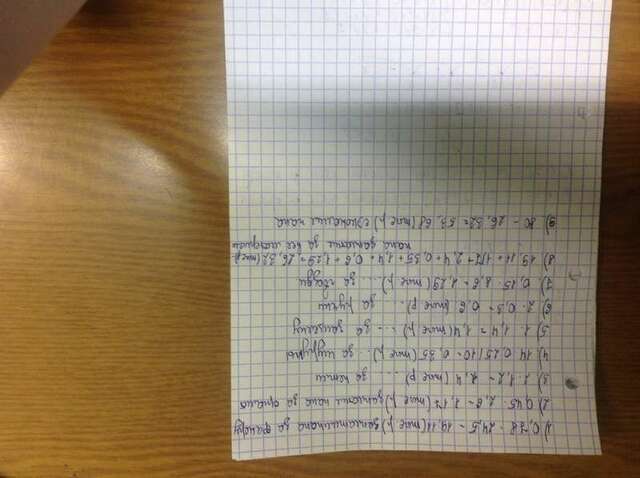 1) 0,78 · 24,5 = 19,11 (тыс. р) заплатил папа за фанеру
2) 0,45 · 2,6 = 1,17 (тыс р) заплатил папа за
3) 2 · 1,2 = 2,4 (тыс р) .... за петли
4) 14 · 0,25 / 10 = 0,35 (тыс р). .. за шурупы
5) 1 · 1,4 = 1,4 (тыс р) ... за защелку
6) 2 · 0,3 = 0,6 (тыс р). .. за ручки
7) 0,15 · 8,6 = 1,29 (тыс р) .... за гвозди.
8) 19,11 + 1,17 + 2,4 + 0,35 + 1,4 + 0,6 + 1,29 = 26,32 (тыс р)
папа заплатил за все материалы
9) 80 - 26,32 = 53,68 (тыс р) сэкономил папа